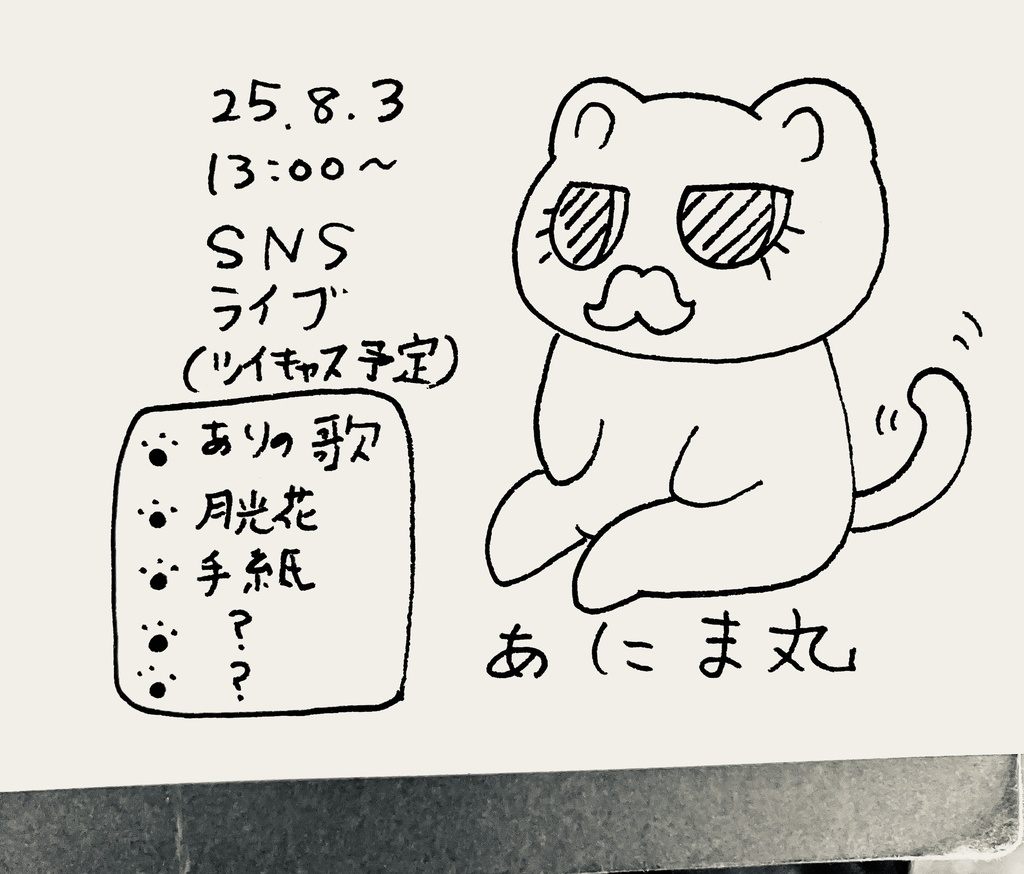 25.8.3
13:00~
SNS
ライブ
(ツイキャス予定)
ありの歌
月光花
手紙
?
?
あにま丸